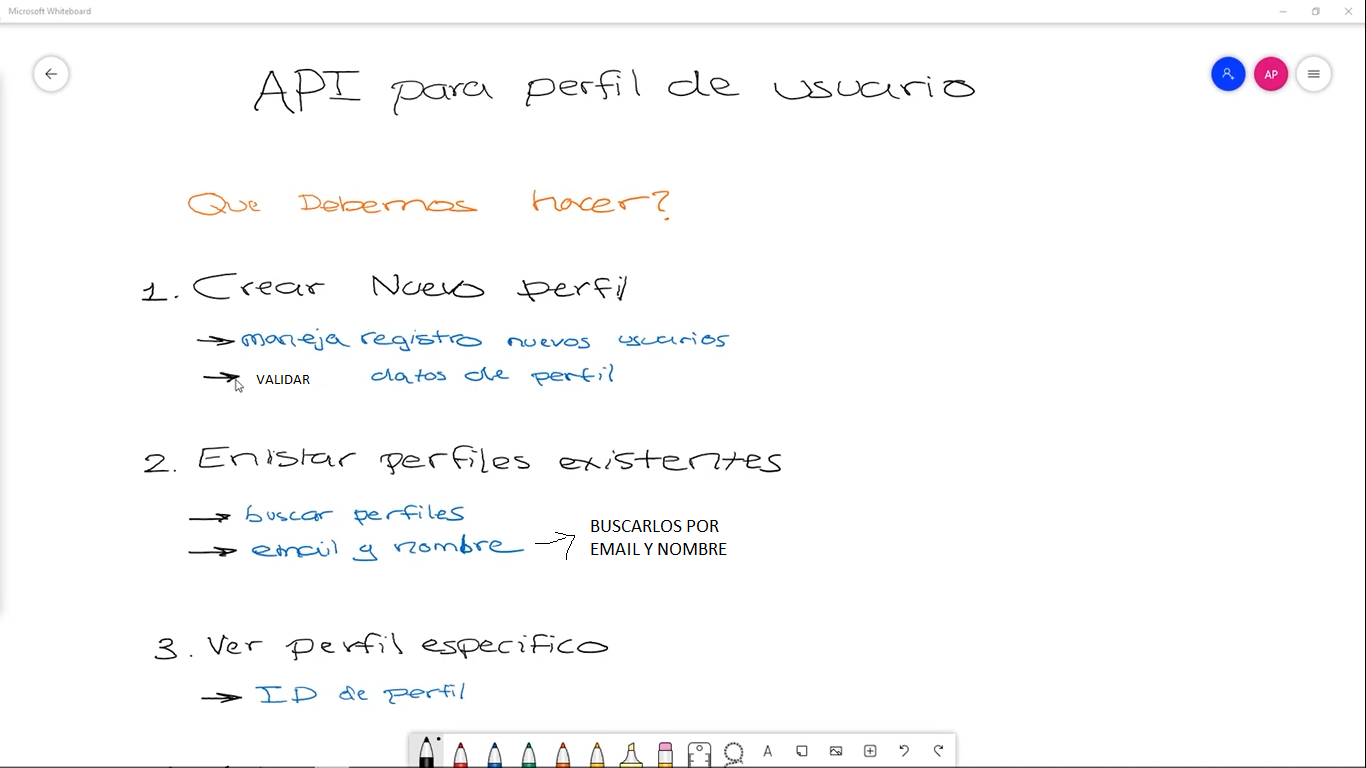 Microsoft Whiteboard
API para perfil de usuario
AP
Que Debemos hacer?
1. Crear Nuevo perfil
→ maneja registro nuevos usuarios
→ VALIDAR datos de perfil
2. Enlistar perfiles existentes
→ buscar perfiles
→ email y nombre → BUSCARLOS POR
EMAIL Y NOMBRE
3. Ver perfil especifico
→ ID de perfil
A